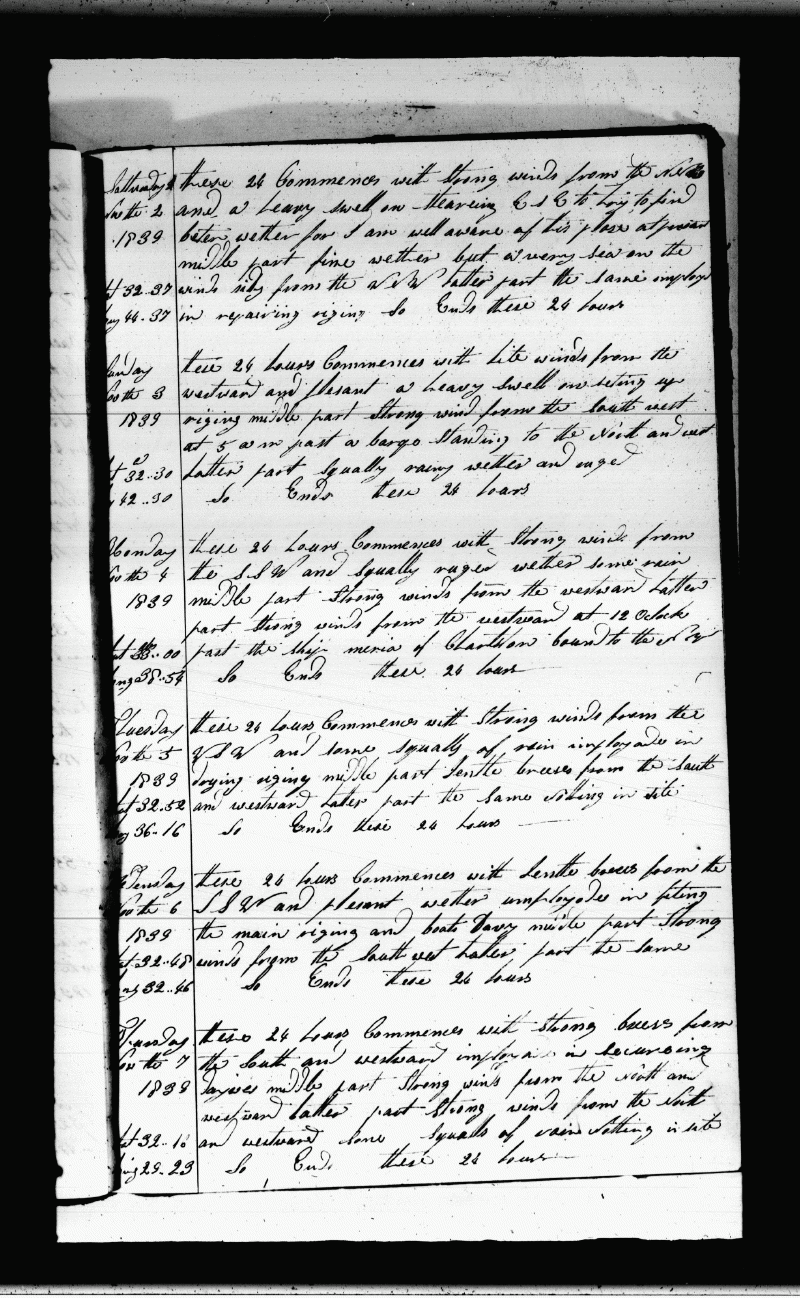 Satturday 2 these 24 Commences with Strong winds from the
Month 2 and a heavy swell on Stearing E S E to try to find
1839 beter wether for I am well aware of this place at presant
middle part fine wether but a very sea on the
Lat 32-37 winds from the W N W Latter part the same imploye
Long 44-37 in repairing riging So Ends these 24 hours
Sunday these 24 hours Commences with lite winds from the
Month 3 westward and plesant a heavy swell on seting up
1839 riging middle part Strong wind from the South west
at 5 a m past a barge Standing to the North and west
Lat 32..30 Latter part Squally rainy wether and ruged
42..30 So Ends these 24 hours
Monday these 24 hours Commences with Strong winds from
Month 4 the S S W and Squally ruged wether some rain
1839 middle part Strong winds from the westward Latter
part Strong winds from the westward at 12 Oclock
Lat 33..00 past the Ship of Charlston bound to the N W
Long 38-54 So Ends these 24 hours
Tuesday these 24 hours Commences with Strong winds from the
Month 5 W S W and some Squalls of rain imployade in
1839 drying riging middle part Jentle breeses from the South
Lat 32..52 and westward Latter part the Same Nothing in site
Long 36-16 So Ends these 24 hours
Wensday these 24 hours Commences with Jentle breeses from the
Month 6 S S W and plesant wether employade in fiting
1839 the main riging and boats Davy middle part Strong
Lat 32..48 winds from the South west Latter part the Same
Long 32..46 So Ends these 24 hours
Thursday these 24 hours Commences with Strong breeses from
Month 7 the South and westward imployade in Secureing
1839 middle part Strong wins from the North and
westward Latter part Strong winds from the North
Lat 32.. and westward Some Squalls of rain Nothing in site
Long 29-23 So Ends these 24 hours